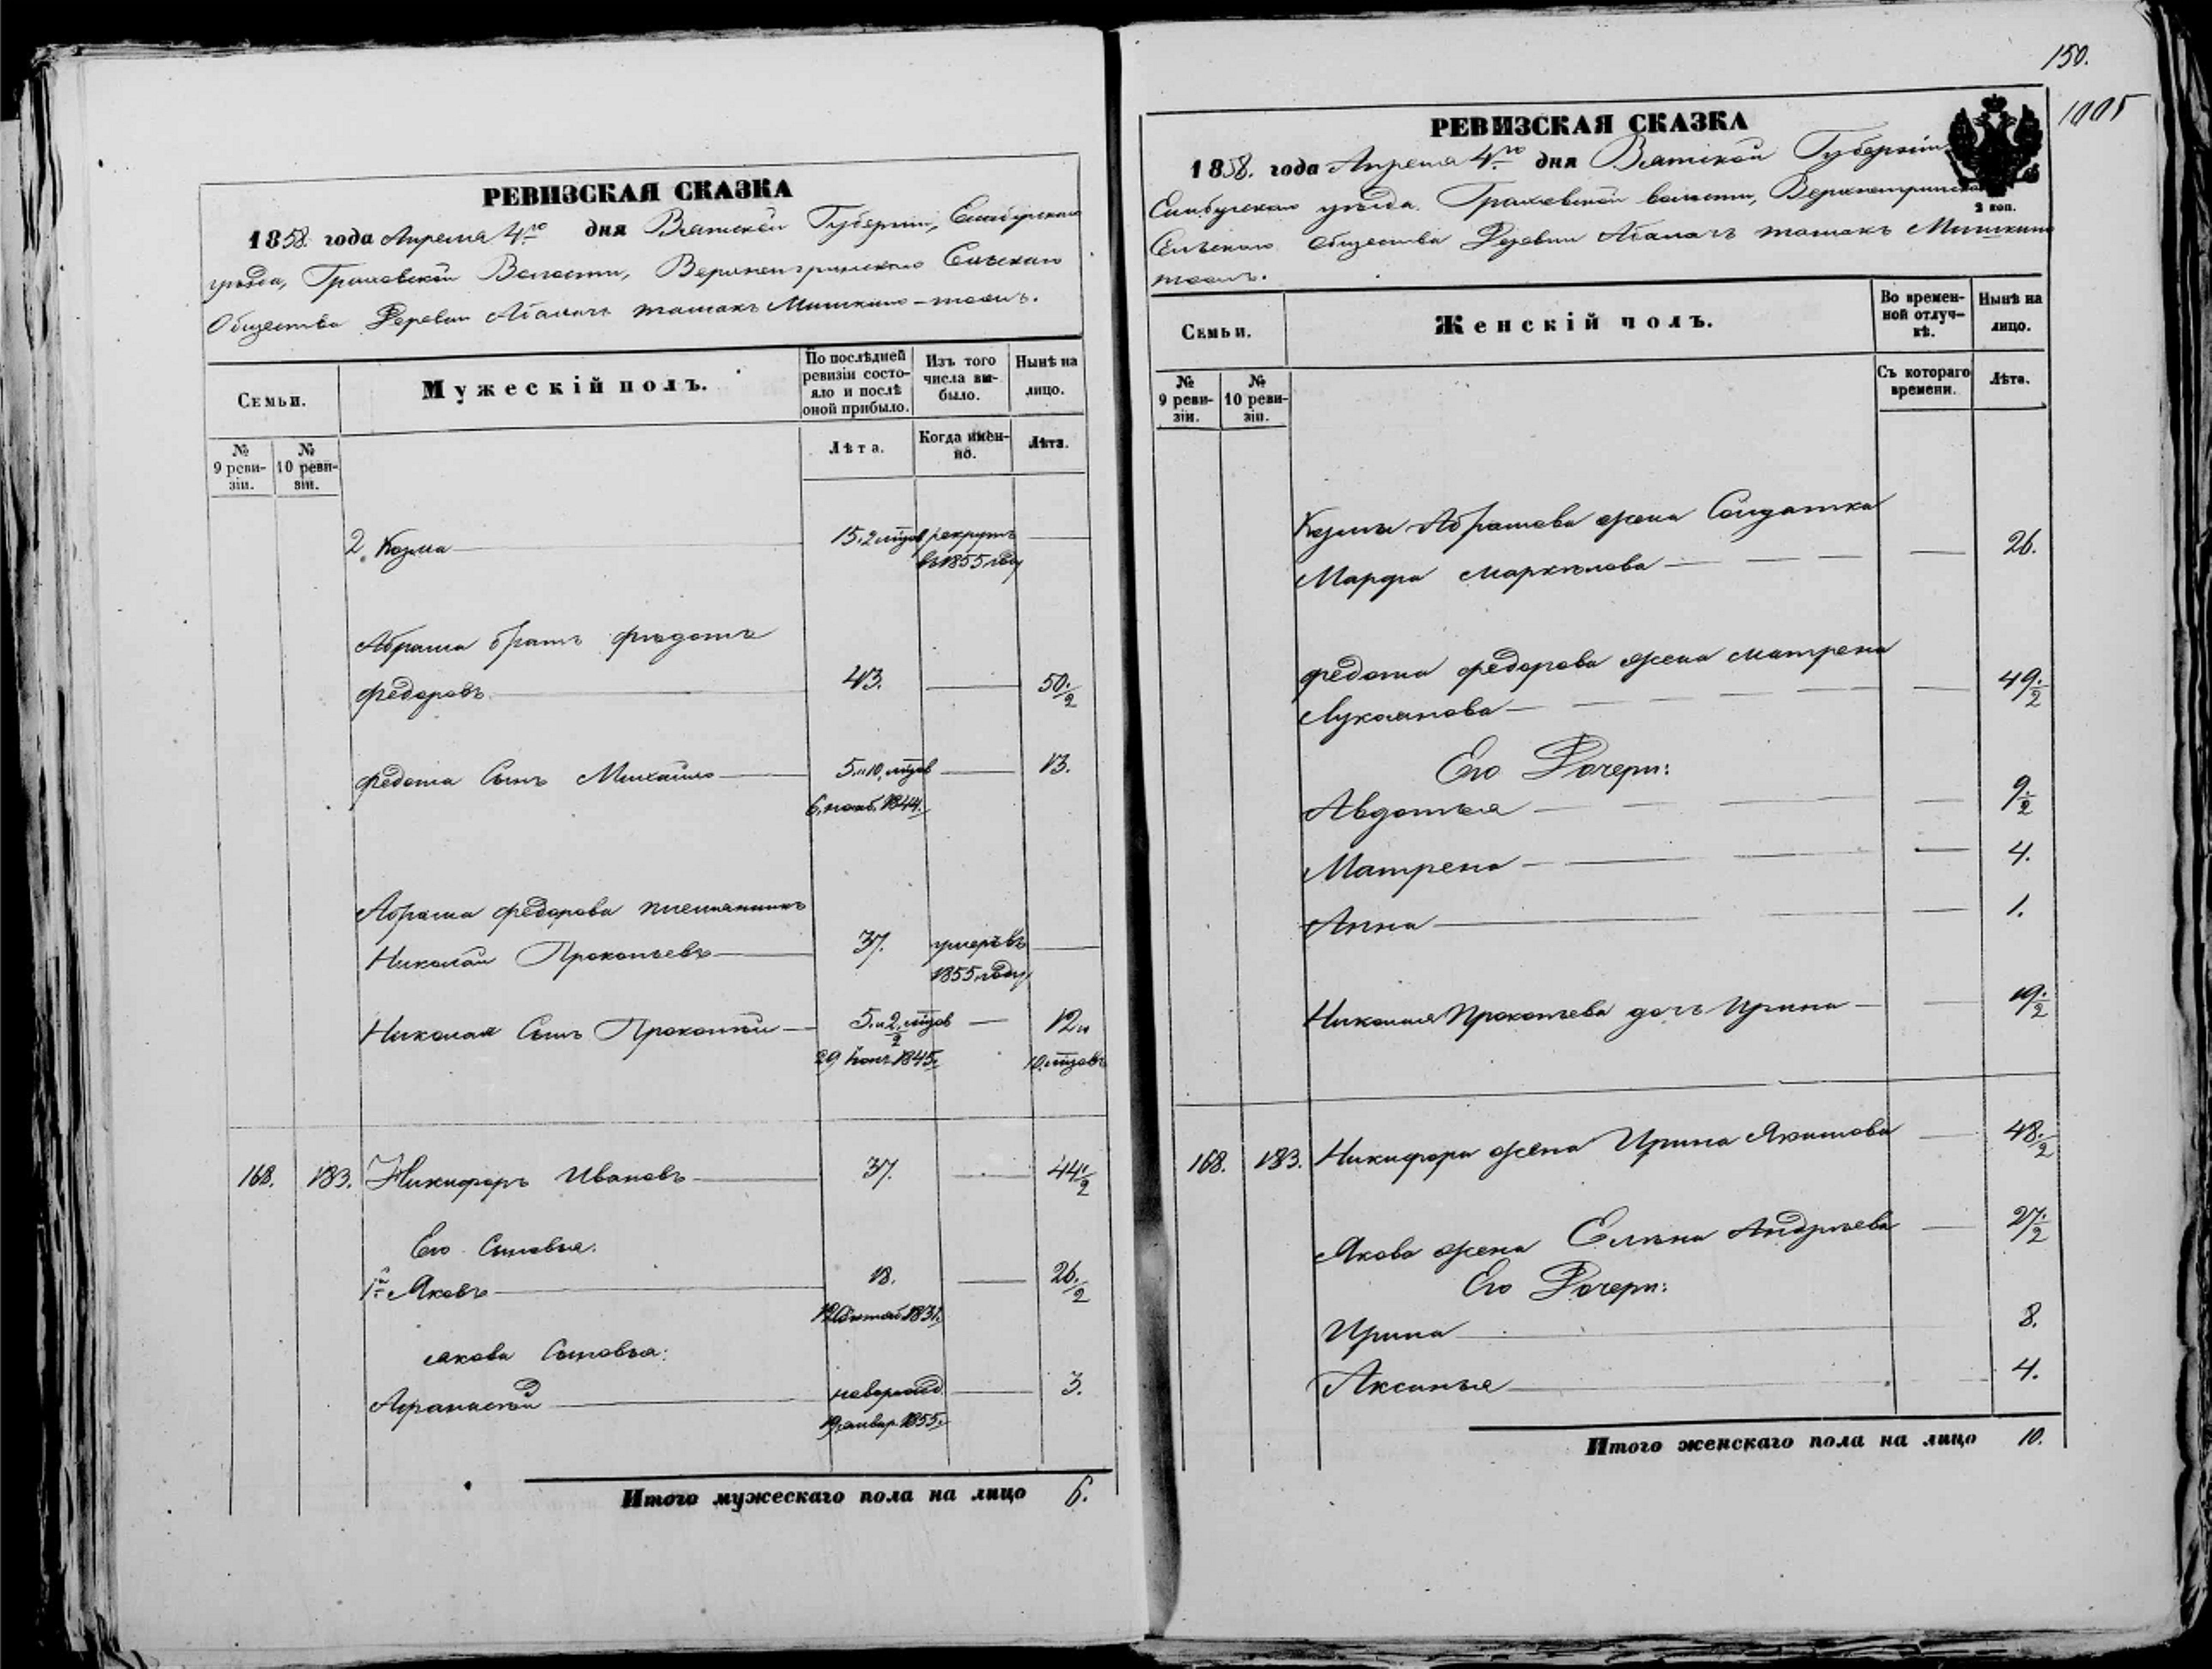 РЕВИЗСКАЯ СКАЗКА
1858 года Апреля 4го дня Вятской Губернии, Елабужского
уѣзда, Граховской Волости, Верхнеигринского Сельского
Общества Деревни Мишкино
Семьи.
Мужескій полъ.
По послѣдней ревизіи состояло и послѣ оной прибыло.
Изъ того числа выбыло.
Нынѣ на лицо.
№ 9 ревизіи.
№ 10 ревизіи.
Лѣта.
Когда именно.
Лѣта.
2. Козма 15. 2 рекрутъ
въ 1855 году
Абрама братъ Федотъ
Федоровъ 43. 50 1/2
Федота Сынъ Михайло 5 и 10 13.
6. нояб. 1844.
Абрама Федорова племянникъ
Николай Прокопьевъ 37. умеръ въ
1855 году
Николая Сынъ Прокопій 5 и 2 1/2 12 и
29 1845. 10
168. 183. Никифоръ Ивановъ 37. 44 1/2
Его Сыновья:
1й Яковъ 18. 26 1/2
Якова Сыновья:
Афанасій новорожд. 3.
19 январ. 1855.
Итого мужескаго пола на лицо 6.
150.
1005
РЕВИЗСКАЯ СКАЗКА
1858. года Апреля 4го дня Вятской Губерніи
2 коп.
уѣзда Граховской волости,
Сельского Общества Деревни
Семьи.
Женскій полъ.
Во временной отлучкѣ.
Нынѣ на лицо.
№ 9 ревизіи.
№ 10 ревизіи.
Съ котораго времени.
Лѣта.
Козмы Абрамова жена Солдатка
Марфа Маркелова 26.
Федота Федорова жена Матрена
Лукоянова 49 1/2
Его Дочери:
Авдотья 9 1/2
Матрена 4.
Анна 1.
Николая Прокопьева дочь Ирина 19 1/2
168. 183. Никифора жена Ирина Якимова 48 1/2
Якова жена Елена Андреева 27 1/2
Его Дочери:
Ирина 8.
Аксинья 4.
Итого женскаго пола на лицо 10.